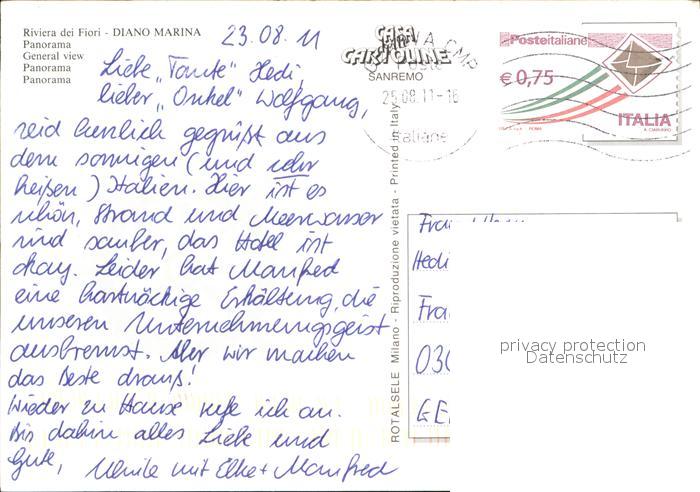 Riviera dei Fiori - DIANO MARINA
Panorama
General view
Panorama
Panorama
23.08.11
Liebe „Tante" Hedi,
lieber „Onkel" Wolfgang,
seid herzlich gegrüßt aus
dem sonnigen (und sehr
heißen) Italien. Hier ist es
schön, Strand und Meerwasser
sind sauber, das Hotel ist
okay. Leider hat Manfred
eine hartnäckige Erkältung, die
unseren Unternehmungsgeist
ausbremst. Aber wir machen
das Beste drauß!
Wieder zu Hause rufe ich an.
Bis dahin alles Liebe und
Gute, Ulrike mit Elke + Manfred
ROTALSELE Milano - Riproduzione vietata - Printed in Italy
CASA
CARTOLINE
CMP
SANREMO
25.08.11-16
italiane
Posteitaliane
€ 0,75
ITALIA
ROMA
Hedi
030
GE
privacy protection
Datenschutz